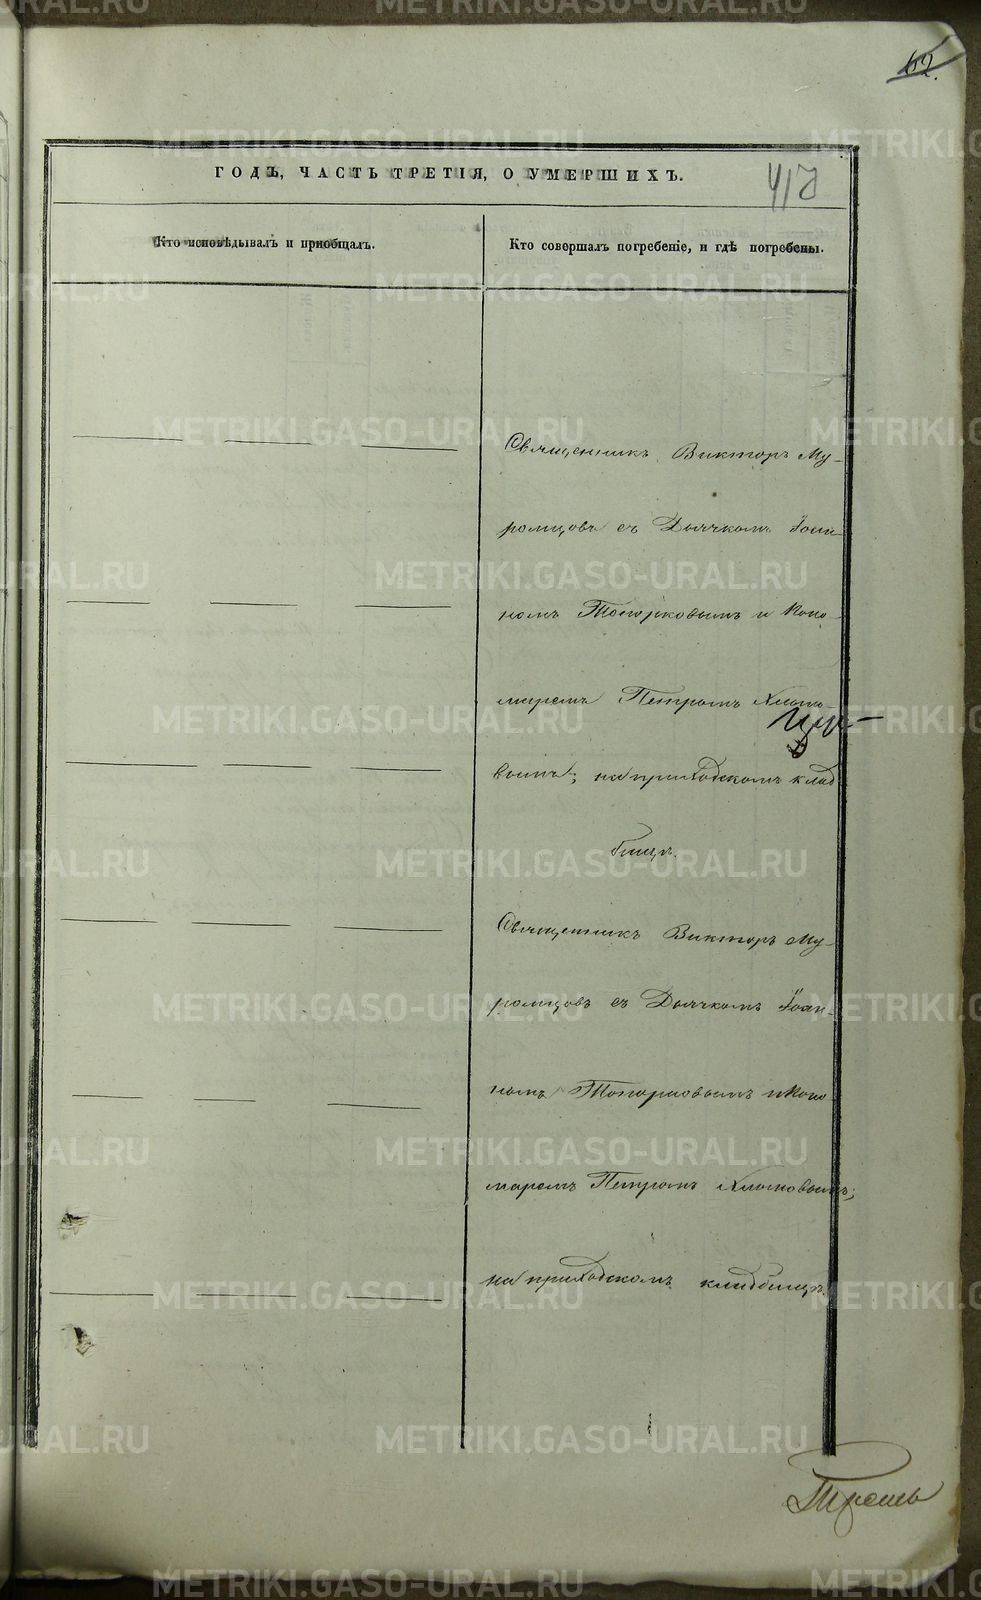 62.
ГОДЪ, ЧАСТЬ ТРЕТІЯ, О УМЕРШИХЪ.
Кто исповѣдывалъ и пріобщалъ.
Кто совершалъ погребеніе, и гдѣ погребены.
Священникъ Викторъ Му-
ромцовъ съ Дьячкомъ Іоан-
номъ Топорковымъ и Поно-
маремъ Петромъ
вымъ; на приходскомъ клад
бищѣ.
Священникъ Викторъ Му-
ромцовъ съ Дьячкомъ Іоан-
номъ Топорковымъ и Поно
маремъ Петромъ Хлыновымъ;
на приходскомъ кладбищѣ.
METRIKI.GASO-URAL.RU